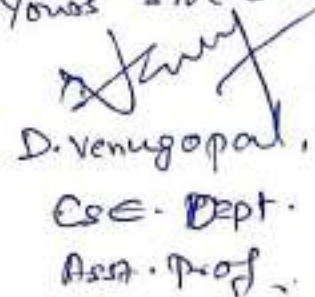 Yours
D. Venugopal.
CSE. Dept.
Asst. Prof.